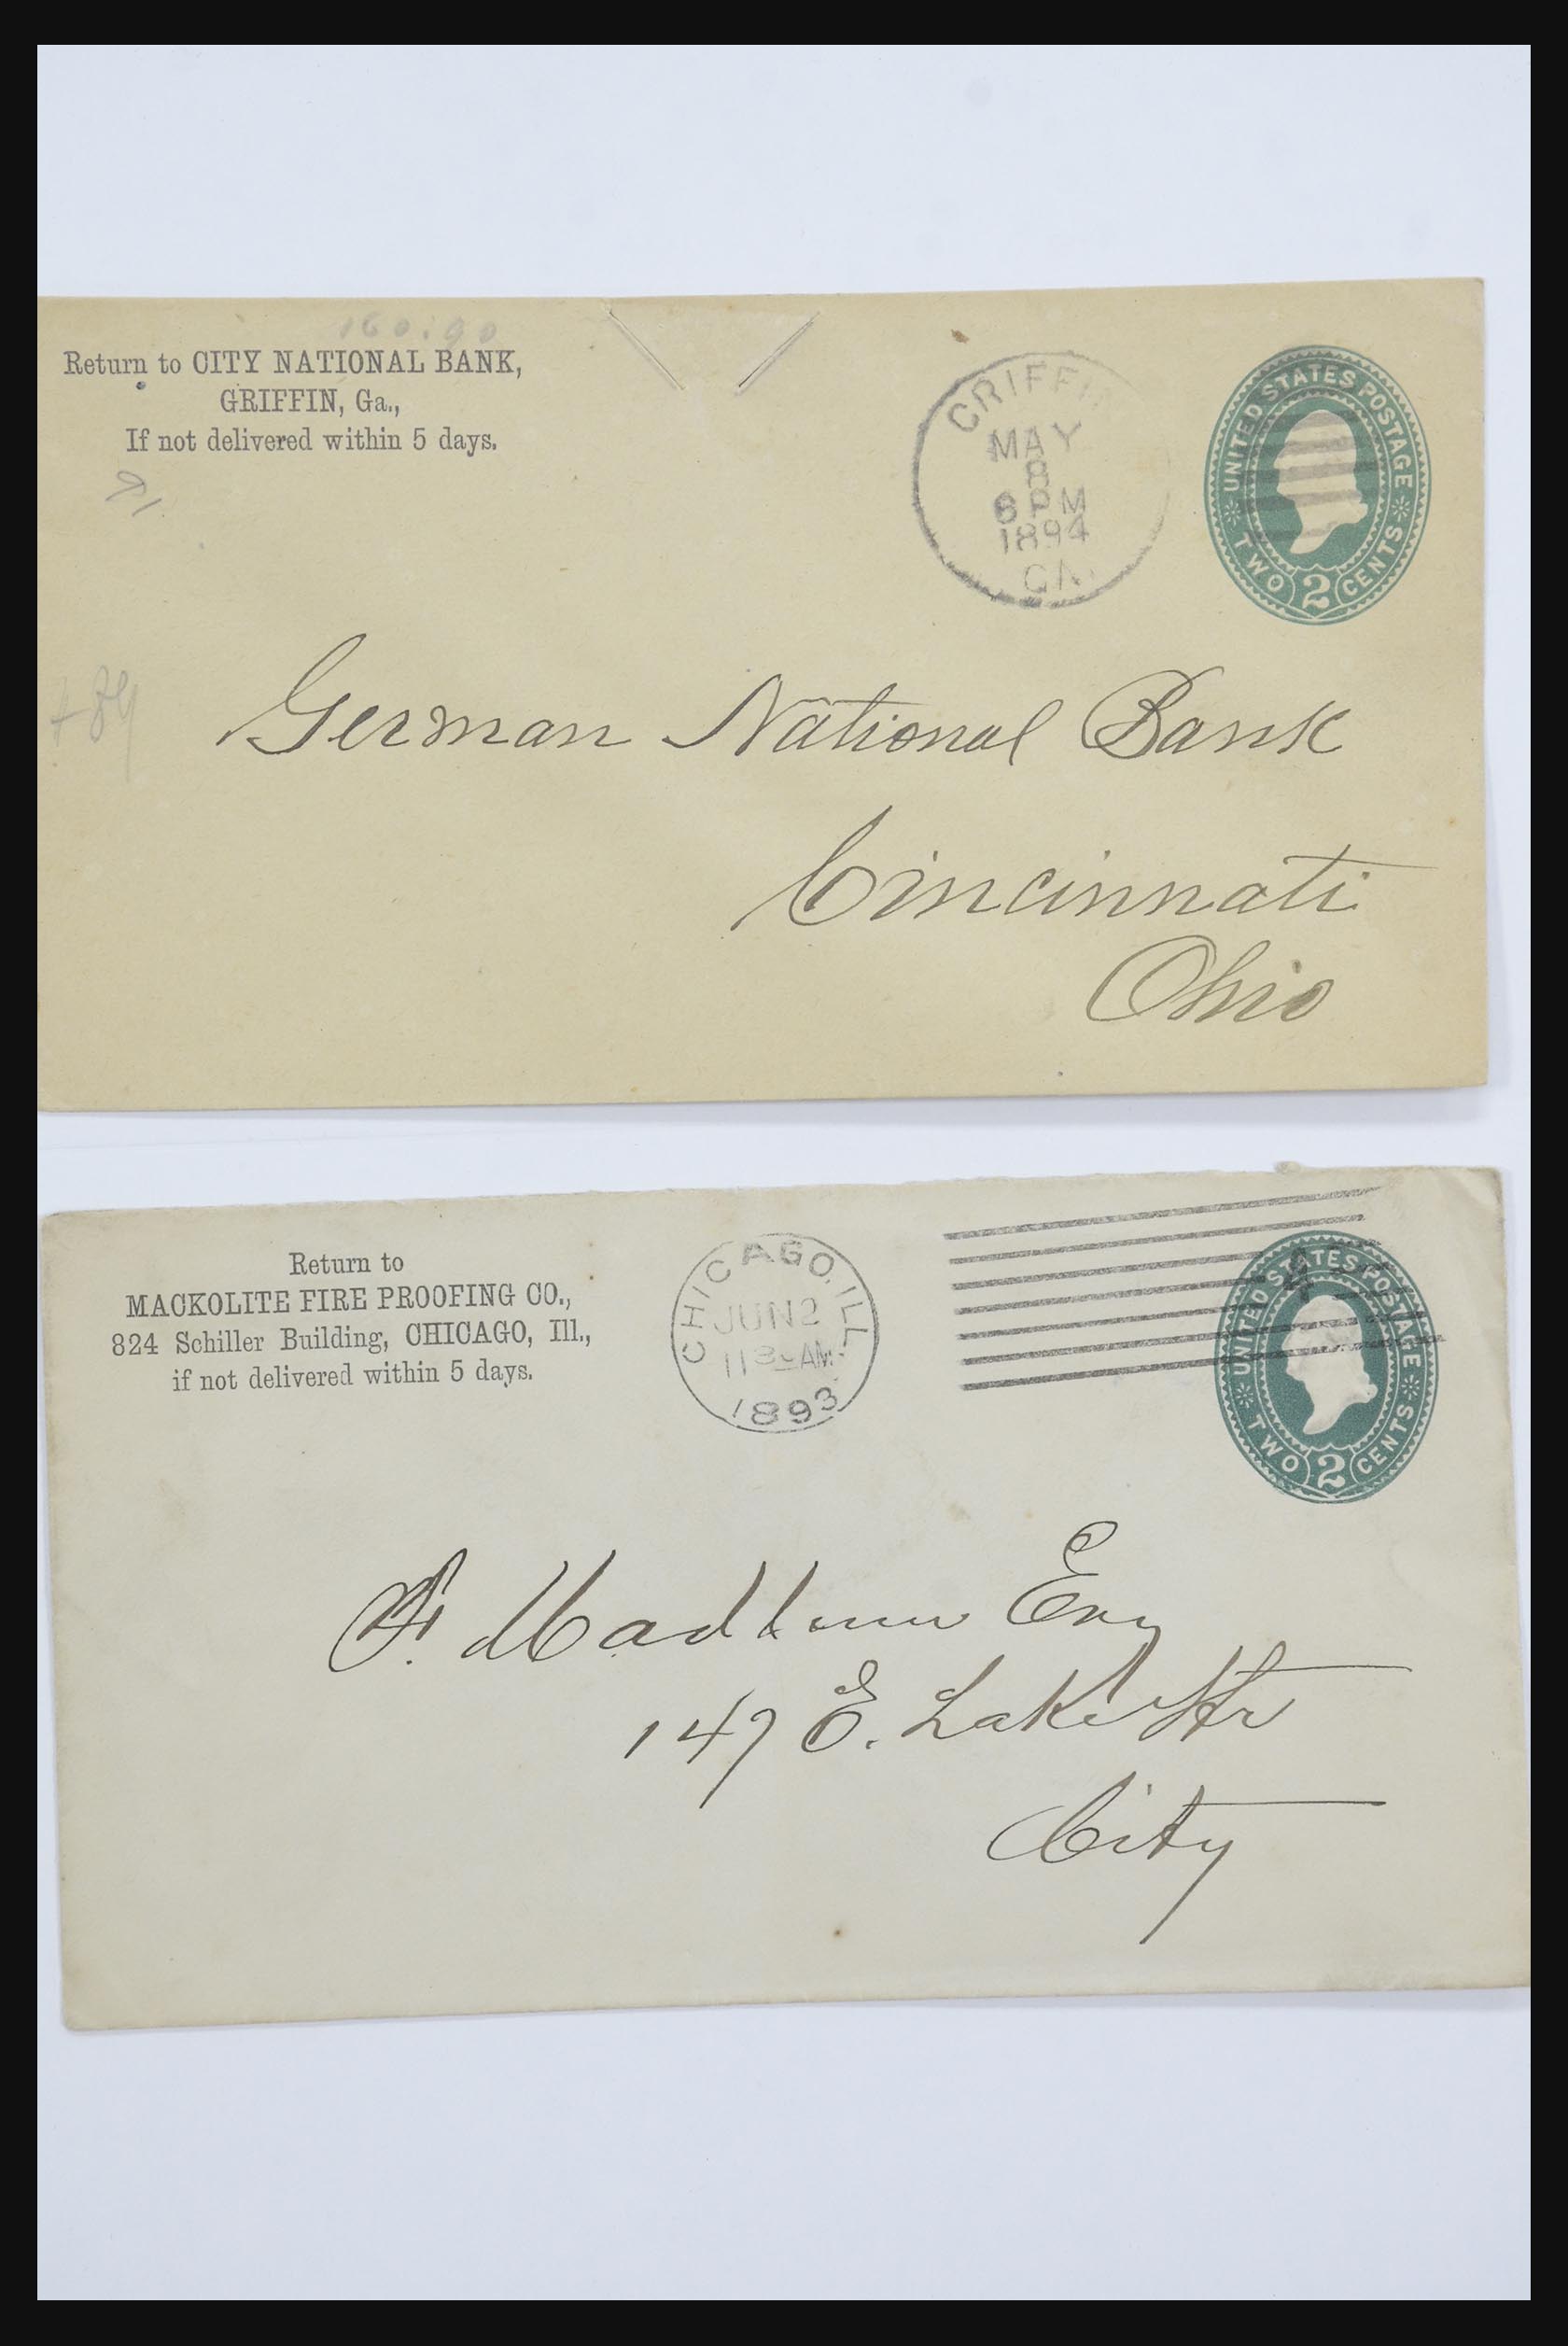 160.90
Return to CITY NATIONAL BANK,
GRIFFIN, Ga.,
If not delivered within 5 days.
GRIFFIN
MAY
8
6 PM
1894
GA.
UNITED STATES POSTAGE
TWO 2 CENTS
German National Bank
Cincinnati
Ohio
Return to
MACKOLITE FIRE PROOFING CO.,
824 Schiller Building, CHICAGO, Ill.,
if not delivered within 5 days.
CHICAGO, ILL.
JUN 2
1130 AM
1893
UNITED STATES POSTAGE
TWO 2 CENTS
147 E. Lake Str
City